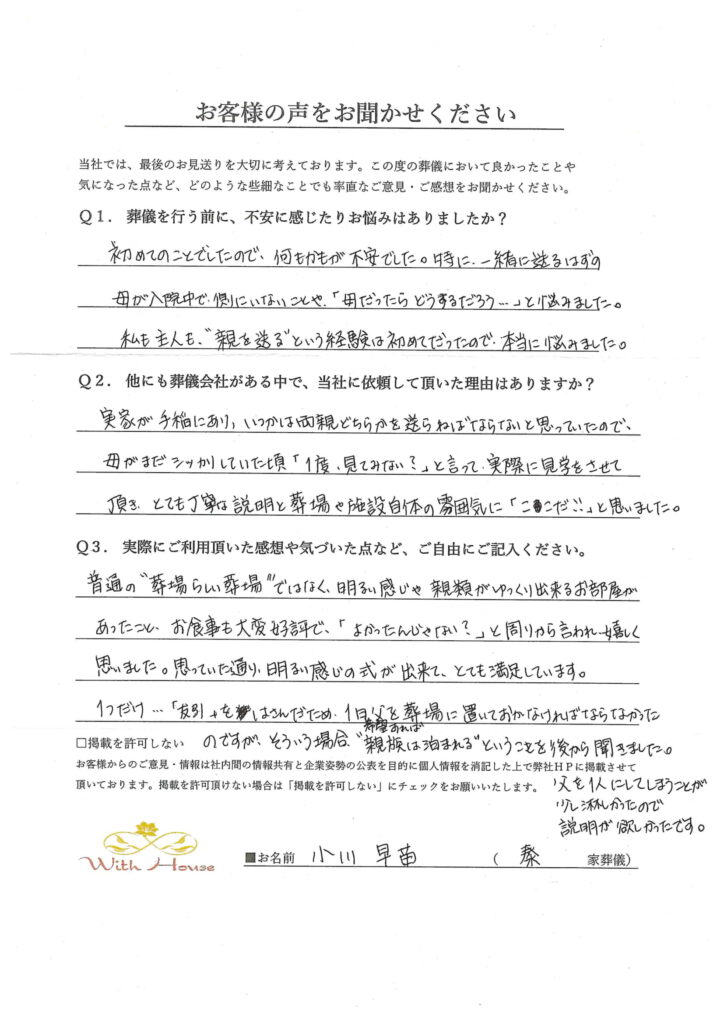 お客様の声をお聞かせください
当社では、最後のお見送りを大切に考えております。この度の葬儀において良かったことや
気になった点など、どのような些細なことでも率直なご意見・ご感想をお聞かせください。
Q1．葬儀を行う前に、不安に感じたりお悩みはありましたか？
初めてのことでしたので、何もかもが不安でした。特に、一緒に送るはずの
母が入院中で、側にいないことや、「母だったらどうするだろう…」と悩みました。
私も主人も、“親を送る”という経験は初めてだったので、本当に悩みました。
Q2．他にも葬儀会社がある中で、当社に依頼して頂いた理由はありますか？
実家が手稲にあり、いつかは両親どちらかを送らねばならないと思っていたので、
母がまだシッカリしていた頃「1度、見てみない？」と言って、実際に見学をさせて
頂き、とても丁寧な説明と葬場や施設自体の雰囲気に「ここだ!!」と思いました。
Q3．実際にご利用頂いた感想や気づいた点など、ご自由にご記入ください。
普通の“葬場らしい葬場”ではなく、明るい感じや親類がゆっくり出来るお部屋が
あったこと、お食事も大変好評で、「よかったんじゃない？」と周りから言われ、嬉しく
思いました。思っていた通り、明るい感じの式が出来て、とても満足しています。
1つだけ…「友引」をはさんだため、1日父を葬場に置いておかなければならなかった
希望すれば
□掲載を許可しない のですが、そういう場合、“親族は泊まれる”ということを後から聞きました。
お客様からのご意見・情報は社内間の情報共有と企業姿勢の公表を目的に個人情報を消記した上で弊社HPに掲載させて
頂いております。掲載を許可頂けない場合は「掲載を許可しない」にチェックをお願いいたします。
父を1人にしてしまうことが
少し淋しかったので
説明が欲しかったです。
With House
■お名前 小川 早苗 （ 秦 家葬儀）